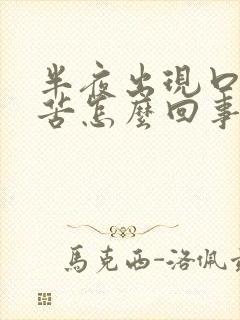 半夜出現口
苦怎麼回事
馬克西-洛佩